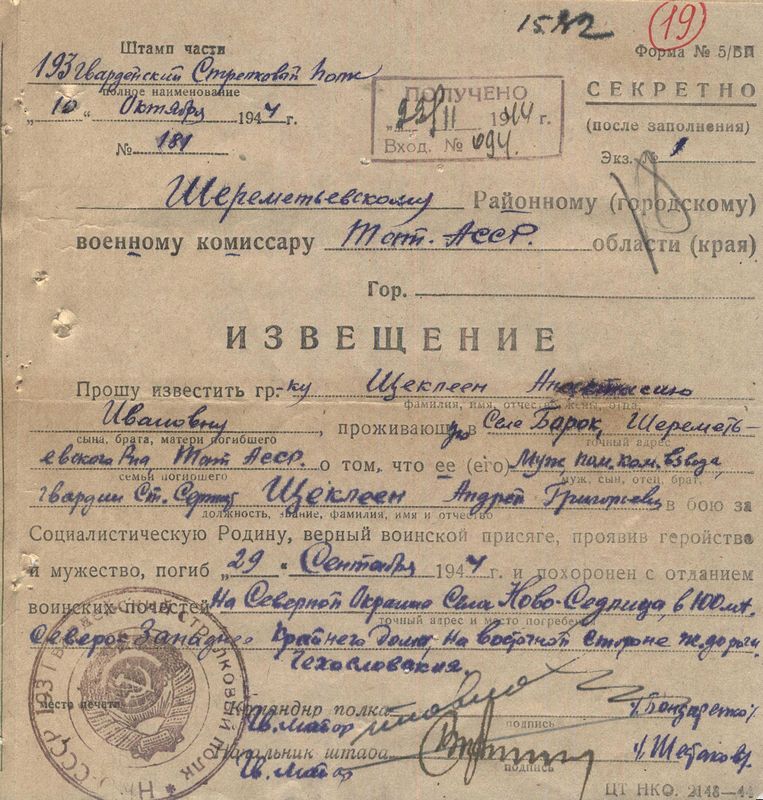 15.
19
Штамп части
Форма № 5/БП
193 Гвардейский Стрелковый Полк
полное наименование
СЕКРЕТНО
„10" Октября 1944 г.
(после заполнения)
№ 181
Экз. № 1
ПОЛУЧЕНО
„22/11 1944 г.
Вход. № 694.
18
Шереметьевскому Районному (городскому)
военному комиссару Тат. АССР. области (края)
Гор.
ИЗВЕЩЕНИЕ
Прошу известить гр-ку Щеклеен Анастасию
фамилия, имя, отчес жены, отца,
Ивановну, проживающую в Село Барок, Шереметь-
сына, брата, матери погибшего
точный адрес
евского Р-на, Тат АССР. о том, что ее (его) Муж, пом. ком. взвода,
семьи погибшего
муж, сын, отец, брат,
гвардии Ст. Сержант Щеклеен Андрей Григорьевич в бою за
должность, звание, фамилия, имя и отчество
Социалистическую Родину, верный воинской присяге, проявив геройство
и мужество, погиб „29" Сентября 1944 г. и похоронен с отданием
воинских почестей На Северной Окраине Села Ново-Седлица, в 100 мт.
точный адрес и место погребения
Северок Западнее Крайнего Дома, на восточной стороне ж. дороги.
Чехословакия.
место печати
Командир полка
Гв. майор
/Бондаренко/
подпись
Начальник штаба
Гв. майор
подпись
ЦТ НКО. 2148—44
СССР 193 ГВАРДЕЙСКИЙ СТРЕЛКОВЫЙ ПОЛК * Н